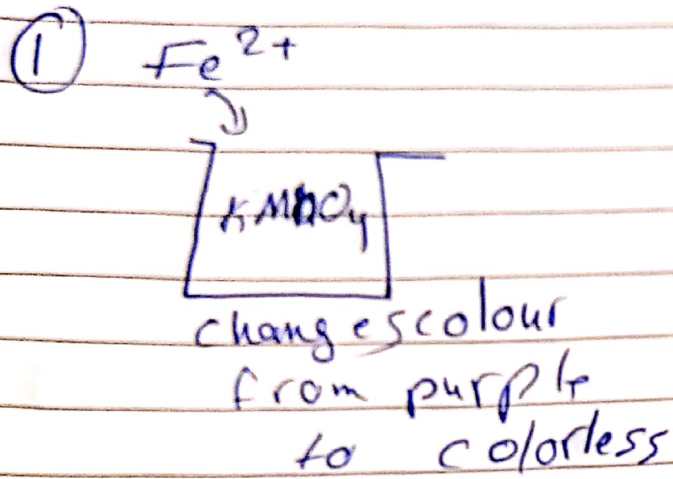 ① Fe²⁺
KMnO₄
changes colour
from purple
to colorless